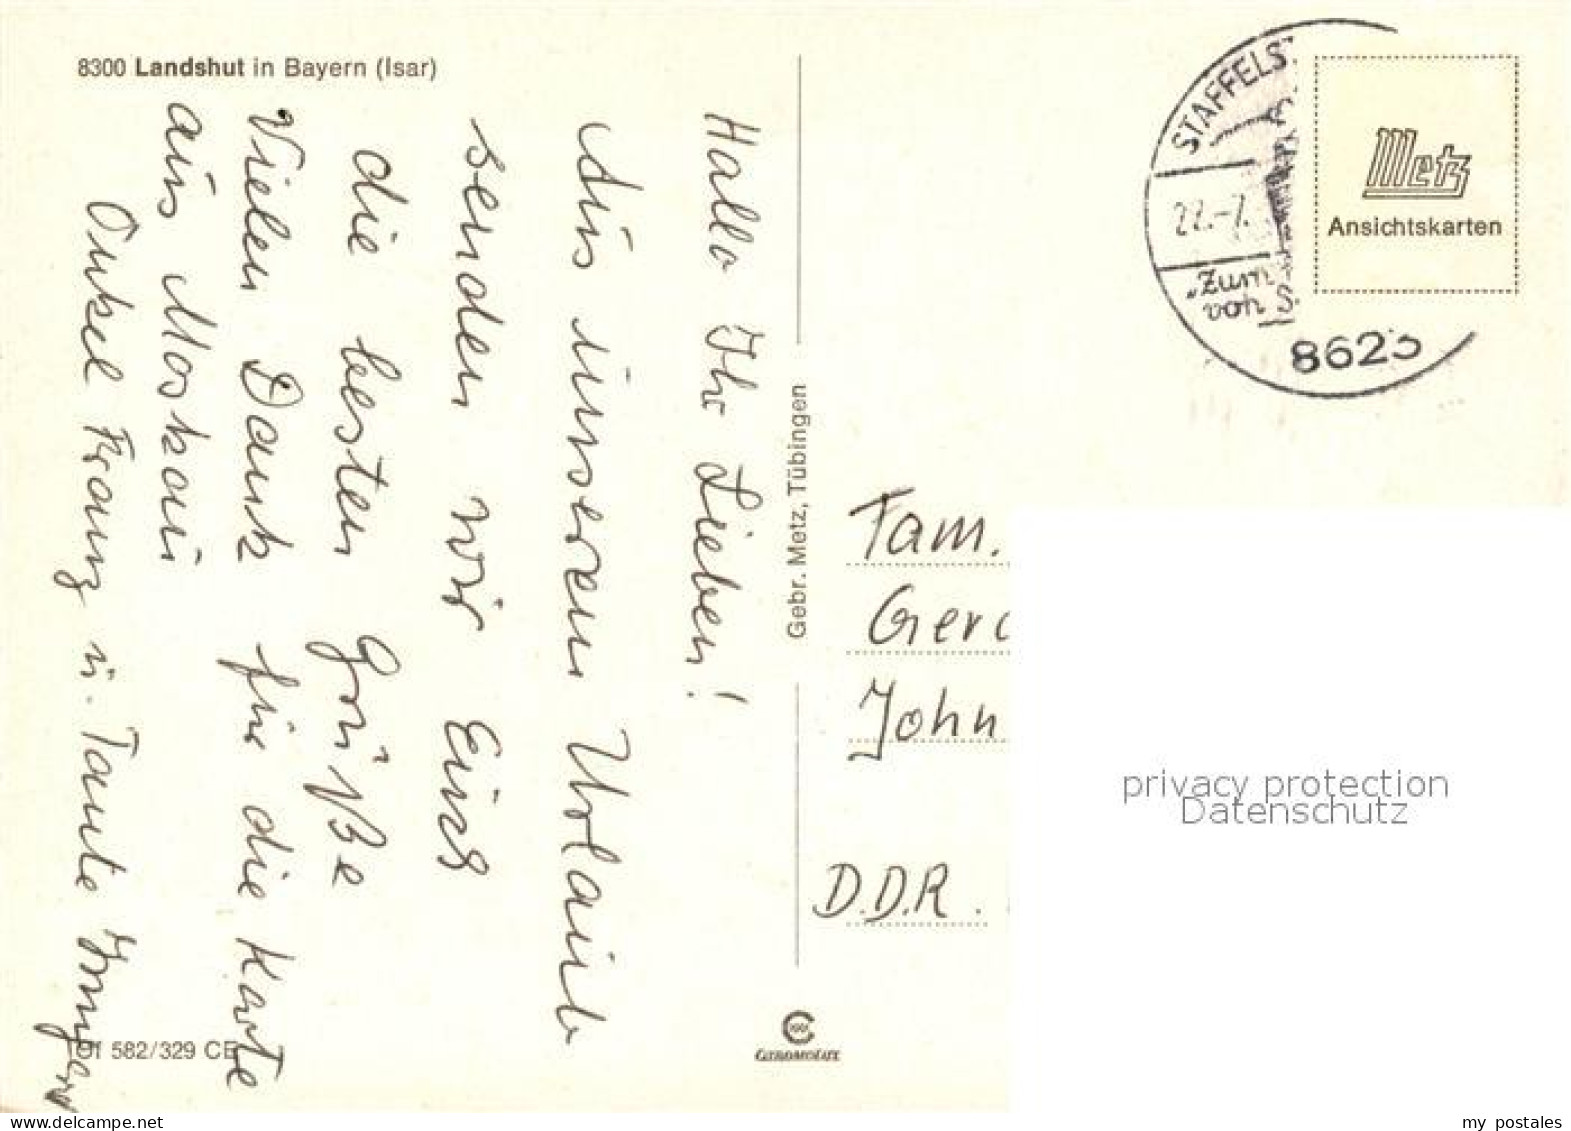 8300 Landshut in Bayern (Isar)
Hallo Ihr Lieben!
Aus unserem Urlaub
senden wir Euch
die besten Grüße
Vielen Dank für die Karte
aus Moskau
Onkel Franz u. Tante
Gebr. Metz, Tübingen
582/329 CE
CHROMOLUX
STAFFELST
22.-7.
"Zum
von S
862
Metz
Ansichtskarten
Fam.
Gerd
John
D.D.R.
privacy protection
Datenschutz
www.delcampe.net
my_postales